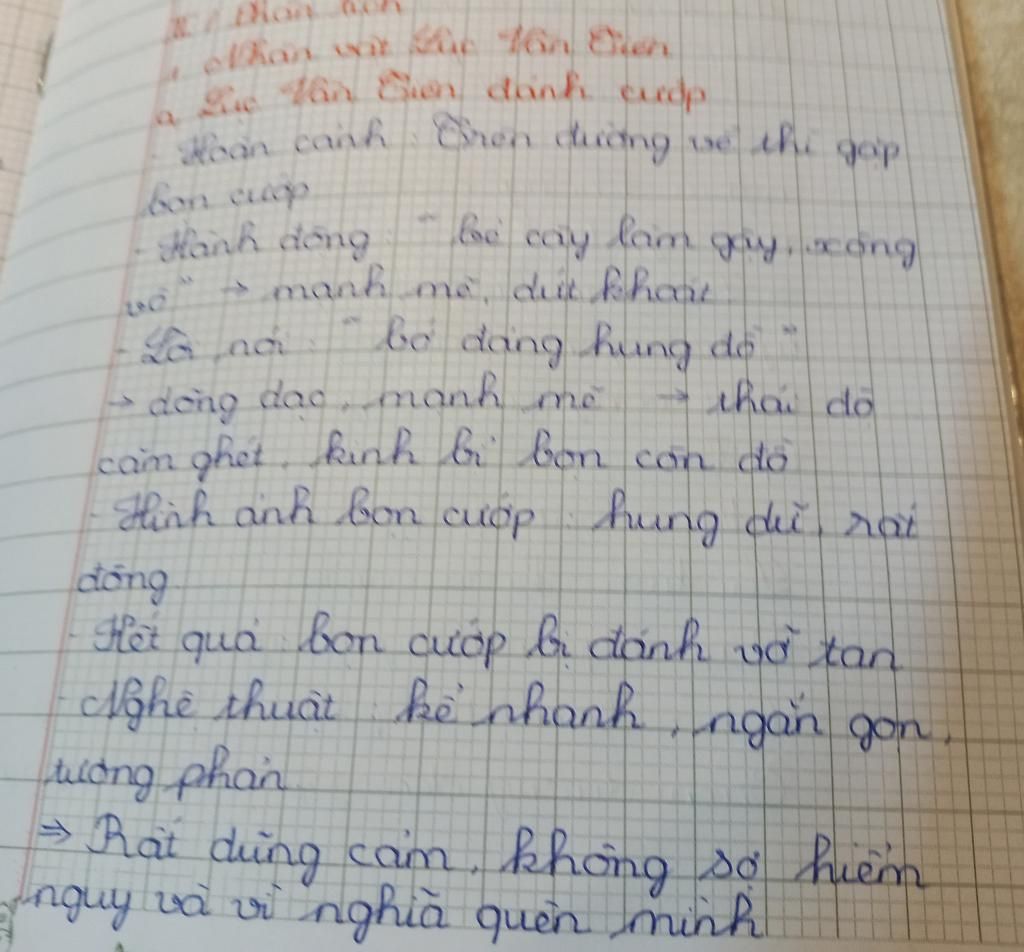 II, Phân tích
1, Nhân vật Lục Vân Tiên
a, Lục Vân Tiên đánh cướp
- Hoàn cảnh: Trên đường về thì gặp
bọn cướp
- Hành động: "bẻ cây làm gậy, xông
vô" → mạnh mẽ, dứt khoát
- Lời nói: "bớ đảng hung đồ"
→ dõng dạc, mạnh mẽ → thái độ
căm ghét, khinh bỉ bọn côn đồ
- Hình ảnh bọn cướp: hung dữ, rất
đông
- Kết quả: bọn cướp bị đánh vỡ tan
- Nghệ thuật: kể nhanh, ngắn gọn,
tương phản
⇒ Rất dũng cảm, không sợ hiểm
nguy và vì nghĩa quên mình